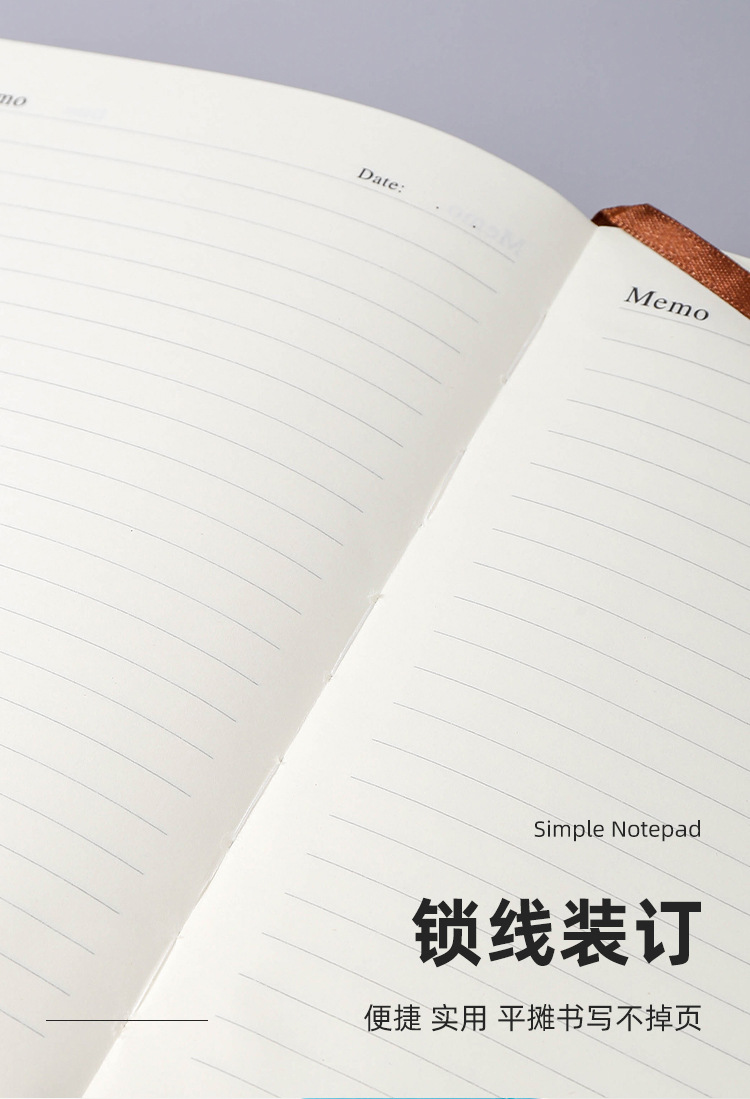 mo
Date:
Memo
Simple Notepad
锁线装订
便捷 实用 平摊书写不掉页